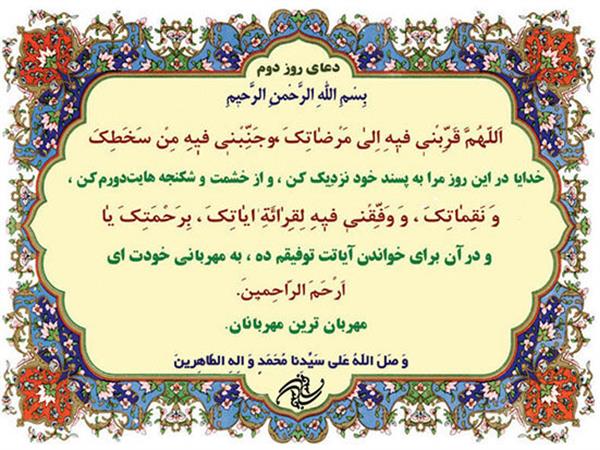 دعای روز دوم
بِسْمِ اللهِ الرَّحْمنِ الرَّحیمِ
اَللّهُمَّ قَرِّبْنی فیهِ اِلی مَرْضاتِکَ ،وجَنِّبْنی فیهِ مِنْ سَخَطِکَ
خدایا در این روز مرا به پسند خود نزدیک کن ، و از خشمت و شکنجه هایت‌دورم کن ،
وَ نَقِماتِکَ ، وَ وَفِّقْنی فیهِ لِقِرائَةِ ایاتِکَ ، بِرَحْمَتِکَ یا
و در آن برای خواندن آیاتت توفیقم ده ، به مهربانی خودت ای
اَرْحَمَ الرّاحِمینَ.
مهربان ترین مهربانان.
وَ صَلَ اللهُ عَلی سَیِّدِنا مُحَمَدٍ وَ الِهِ الطّاهِرینَ